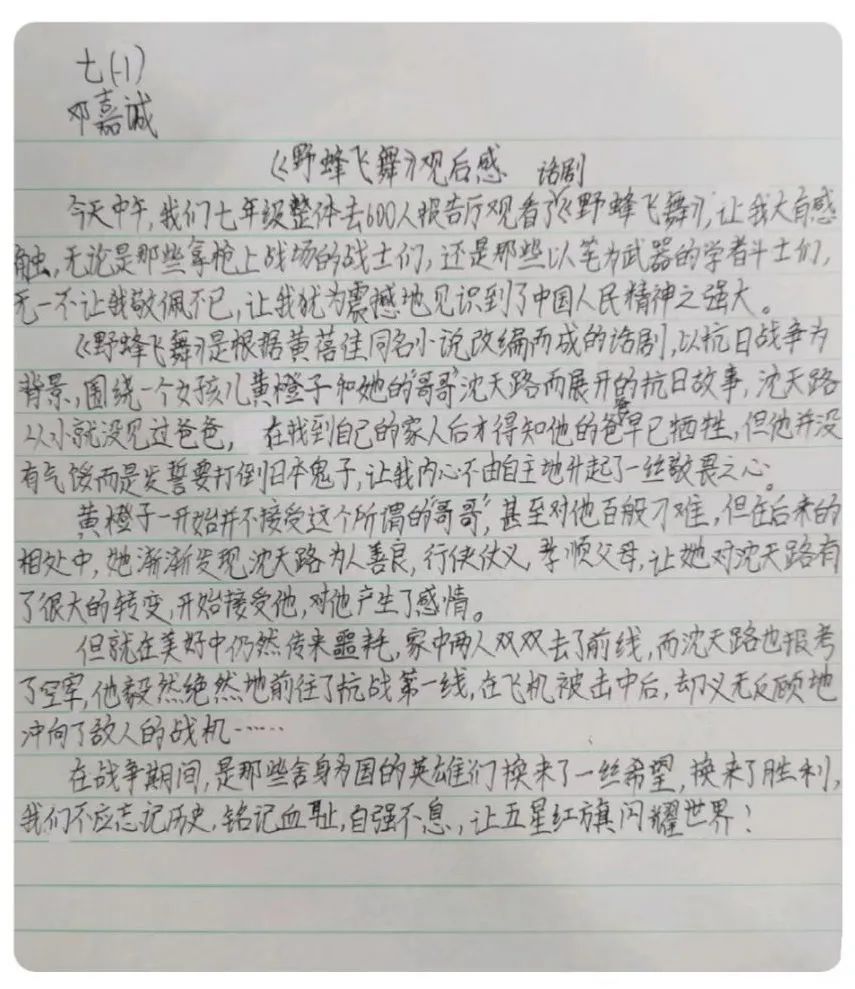 七(1)
邓嘉诚
《野蜂飞舞》观后感 话剧
今天中午,我们七年级整体去600人报告厅观看了《野蜂飞舞》,让我大有感
触,无论是那些拿枪上战场的战士们,还是那些以笔为武器的学者斗士们,
无一不让我敬佩不已,让我犹为震撼地见识到了中国人民精神之强大。
《野蜂飞舞》是根据黄蓓佳同名小说改编而成的话剧,以抗日战争为
背景,围绕一个女孩儿黄橙子和她的"哥哥"沈天路而展开的抗日故事,沈天路
从小就没见过爸爸,在找到自己的家人后才得知他的爸爸早已牺牲,但他并没
有气馁而是发誓要打倒日本鬼子,让我内心不由自主地升起了一丝敬畏之心。
黄橙子一开始并不接受这个所谓的"哥哥",甚至对他百般刁难,但在后来的
相处中,她渐渐发现沈天路为人善良,行侠仗义,孝顺父母,让她对沈天路有
了很大的转变,开始接受他,对他产生了感情。
但就在美好中仍然传来噩耗,家中两人双双去了前线,而沈天路也报考
了空军,他毅然绝然地前往了抗战第一线,在飞机被击中后,却义无反顾地
冲向了敌人的战机……
在战争期间,是那些舍身为国的英雄们换来了一丝希望,换来了胜利,
我们不应忘记历史,铭记血耻,自强不息,让五星红旗闪耀世界!